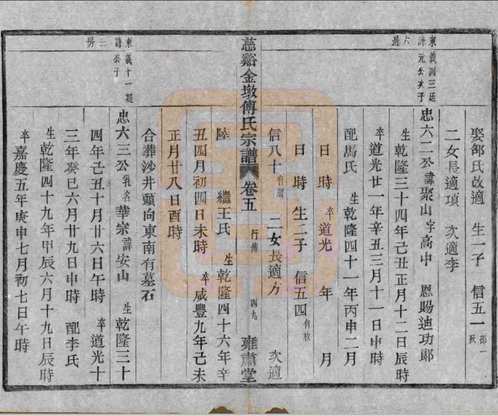 東
義訓三廷
詠元公次子
六
房
娶鄒氏改適　生一子　信五一
二女長適項　次適李
忠六二公諱聚山字高中　恩賜迪功郞
生乾隆三十四年己丑正月十二日辰時
卒道光廿一年辛丑三月十一日申時
配馬氏　生乾隆四十一年丙申二月
日時　卒道光　年　月
日時　生二子　信五四有收
信八十有謂　二女長適方　次適
慈谿金墩傅氏宗譜　卷五　行傳　四九　雍肅堂
陸　繼王氏　生乾隆四十六年辛
丑四月初四日未時　卒咸豐九年己未
正月廿八日酉時
合葬沙井頭向東南有墓石
忠六三公乳名華宗諱安山　生乾隆三十
四年己丑十月廿六日午時　卒道光十
三年癸巳六月廿九日申時　配李氏
生乾隆四十九年甲辰六月十九日辰時
卒嘉慶五年庚申七月初七日午時
東
義十一廷
詠公子
三
房